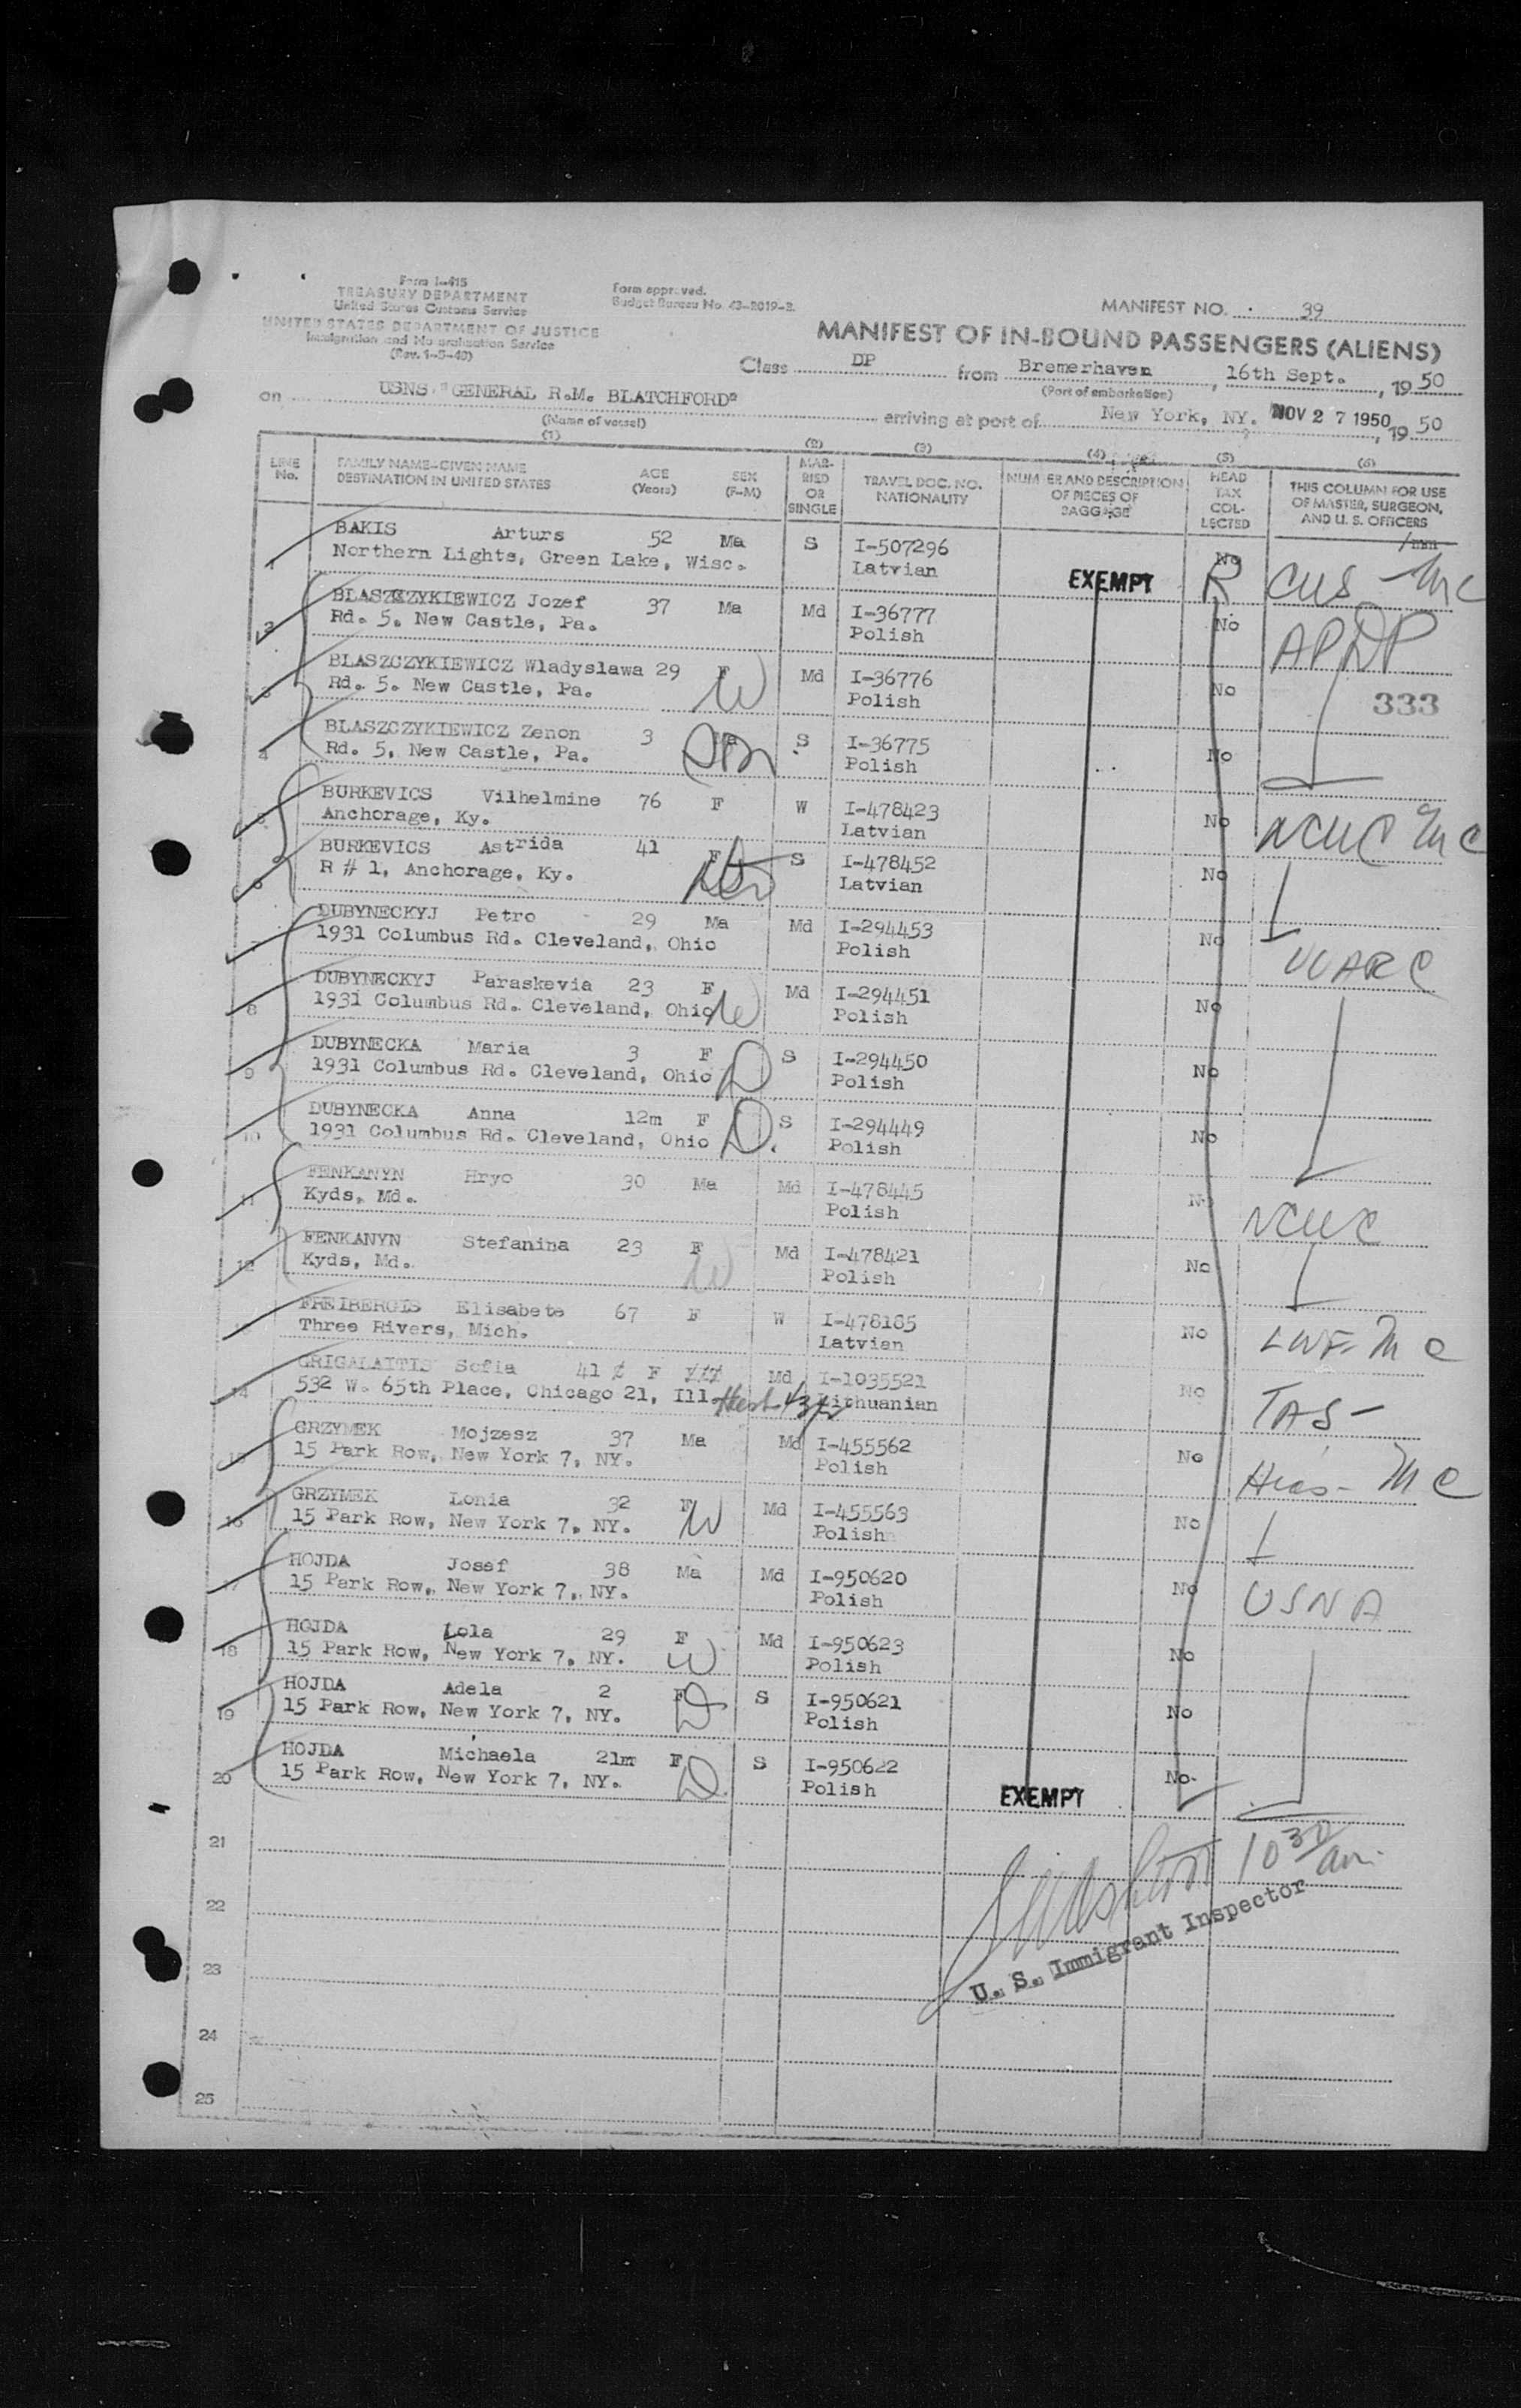 Form I-415
TREASURY DEPARTMENT
United States Customs Service
UNITED STATES DEPARTMENT OF JUSTICE
Immigration and Naturalization Service
(Rev. 1-5-49)
Form approved.
Budget Bureau No. 43-R019-2.
MANIFEST NO. 39
MANIFEST OF IN-BOUND PASSENGERS (ALIENS)
Class DP from Bremerhaven, 16th Sept., 1950
(Port of embarkation)
on USNS "GENERAL R.M. BLATCHFORD" arriving at port of New York, NY. NOV 27 1950, 1950
(Name of vessel)
(1) (2) (3) (4) (5) (6)
LINE No.
FAMILY NAME-GIVEN NAME DESTINATION IN UNITED STATES
AGE (Years)
SEX (F-M)
MARRIED OR SINGLE
TRAVEL DOC. NO. NATIONALITY
NUMBER AND DESCRIPTION OF PIECES OF BAGGAGE
HEAD TAX COLLECTED
THIS COLUMN FOR USE OF MASTER, SURGEON, AND U. S. OFFICERS
1 BAKIS Arturs 52 Ma S I-507296 No
Northern Lights, Green Lake, Wisc. Latvian EXEMPT R CWS - mc
2 BLASZCZYKIEWICZ Jozef 37 Ma Md I-36777 No
Rd. 5. New Castle, Pa. Polish APDP
3 BLASZCZYKIEWICZ Wladyslawa 29 F W Md I-36776 No
Rd. 5. New Castle, Pa. Polish 333
4 BLASZCZYKIEWICZ Zenon 3 Ma Son S I-36775 No
Rd. 5, New Castle, Pa. Polish
5 BURKEVICS Vilhelmine 76 F W I-478423 No
Anchorage, Ky. Latvian NCWC mc
6 BURKEVICS Astrida 41 F S I-478452 No
R # 1, Anchorage, Ky. Latvian
7 DUBYNECKYJ Petro 29 Ma Md I-294453 No
1931 Columbus Rd. Cleveland, Ohio Polish UUARC
8 DUBYNECKYJ Paraskevia 23 F W Md I-294451 No
1931 Columbus Rd. Cleveland, Ohio Polish
9 DUBYNECKA Maria 3 F D S I-294450 No
1931 Columbus Rd. Cleveland, Ohio Polish
10 DUBYNECKA Anna 12m F D S I-294449 No
1931 Columbus Rd. Cleveland, Ohio Polish
11 FENKANYN Hryc 30 Ma Md I-478445 No
Kyds, Md. Polish NCWC
12 FENKANYN Stefanina 23 F W Md I-478421 No
Kyds, Md. Polish
13 FREIBERGIS Elisabete 67 F W I-478185 No
Three Rivers, Mich. Latvian LWF- mc
14 GRIGALAITIS Sofia 41 F Md I-1035521 No
532 W. 65th Place, Chicago 21, Ill. Lithuanian TAS -
15 GRZYMEK Mojzesz 37 Ma Md I-455562 No
15 Park Row, New York 7, NY. Polish Hias - mc
16 GRZYMEK Lonia 32 F W Md I-455563 No
15 Park Row, New York 7, NY. Polish
17 HOJDA Josef 38 Ma Md I-950620 No
15 Park Row, New York 7, NY. Polish USNA
18 HOJDA Lola 29 F W Md I-950623 No
15 Park Row, New York 7, NY. Polish
19 HOJDA Adela 2 F D S I-950621 No
15 Park Row, New York 7, NY. Polish
20 HOJDA Michaela 21m F D S I-950622 No
15 Park Row, New York 7, NY. Polish EXEMPT
21
10 30 am.
22
U. S. Immigrant Inspector
23
24
25